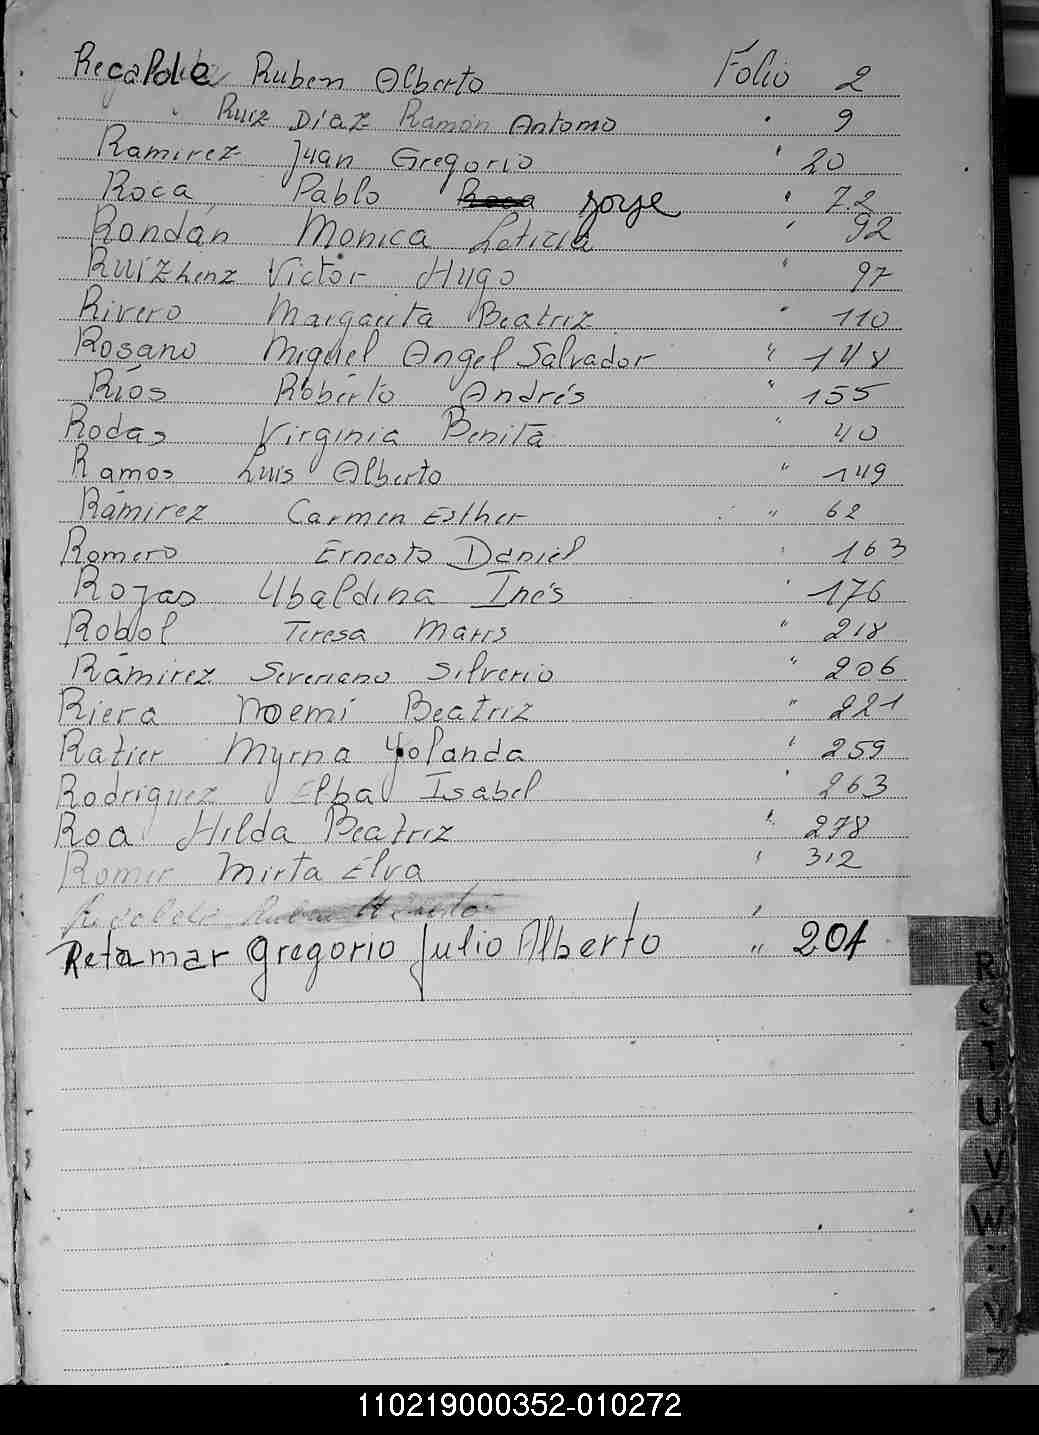 Regalde Ruben Alberto Folio 2
Ruiz Díaz Ramón Antonio " 9
Ramirez Juan Gregorio " 20
Roca, Pablo Jorge " 72
Rondán Monica Leticia " 92
Ruiz Henz Victor Hugo " 97
Rivero Margarita Beatriz " 110
Rosano Miguel Angel Salvador " 148
Ríos Roberto Andrés " 155
Rodas Virginia Benita " 40
Ramos Luis Alberto " 149
Ramirez Carmen Esther " 62
Romero Ernesto Daniel " 163
Rojas Ubaldina Inés " 176
Robol Teresa Maris " 218
Ramirez Severiano Silverio " 206
Riera Noemi Beatriz " 221
Ratier Myrna Yolanda " 259
Rodriguez Elba Isabel " 263
Roa Hilda Beatriz " 278
Romer Mirta Elva " 312
Retamar Gregorio Julio Alberto " 201
R
S
T
U
V
W
Y
Z
110219000352-010272